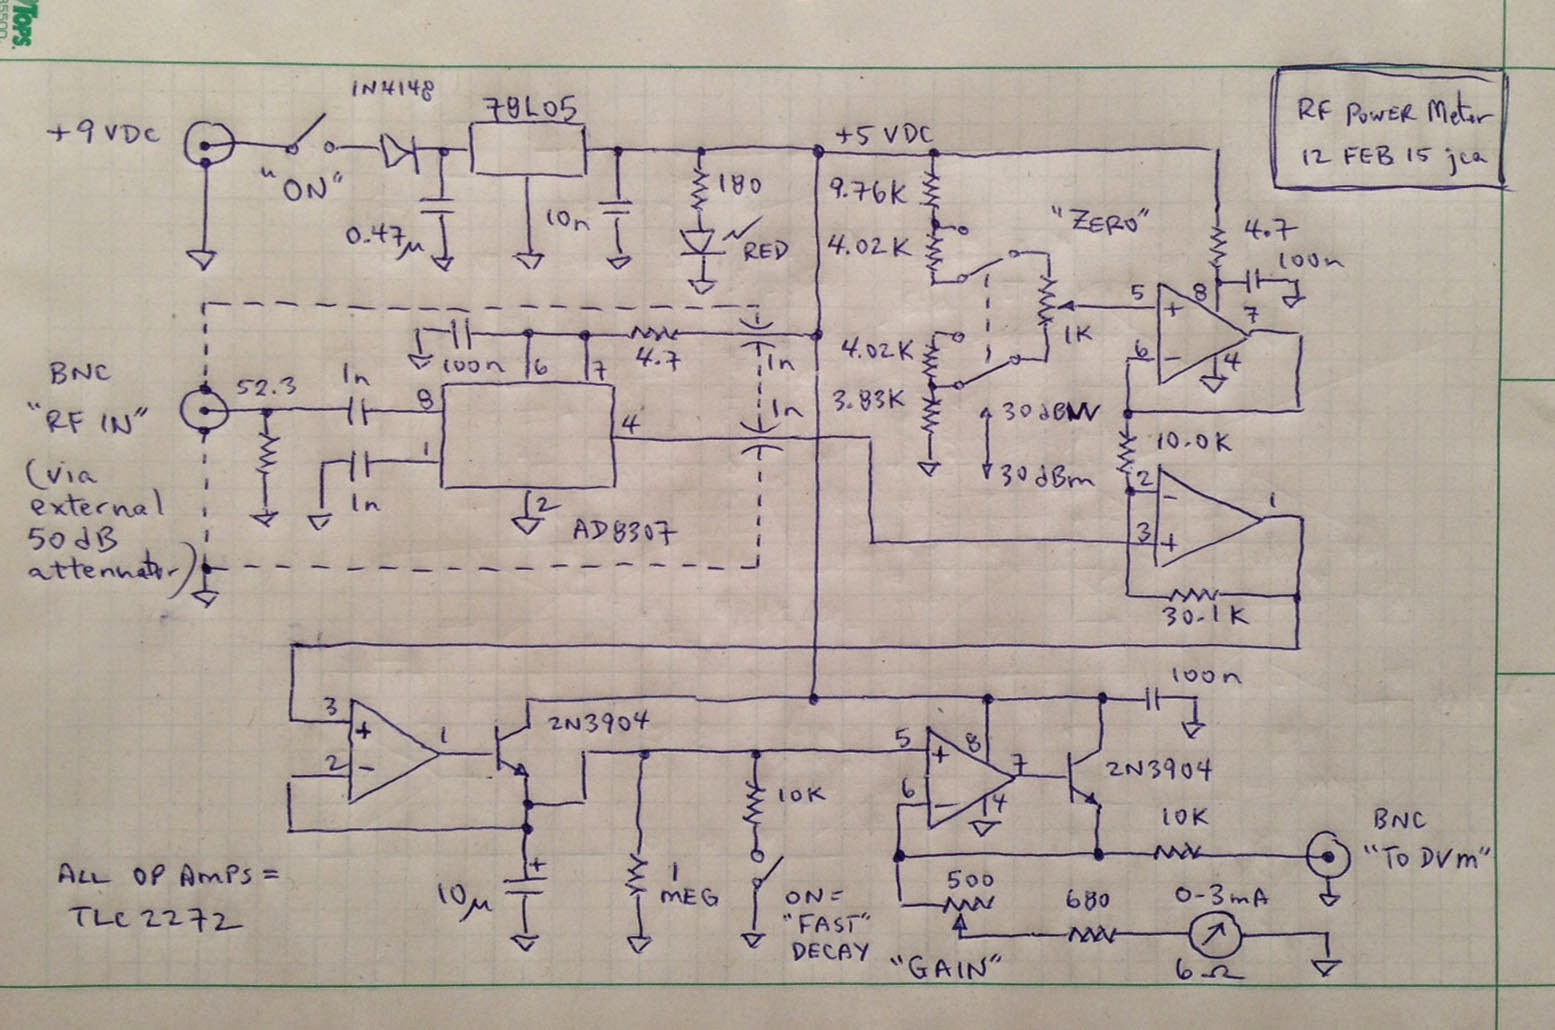 Tops.
35500
RF POWER Meter
12 FEB 15 jca
+9 VDC
"ON"
1N4148
0.47µ
78L05
10n
180
RED
+5 VDC
9.76K
4.02K
"ZERO"
1K
4.02K
3.83K
30 dBW
30 dBm
4.7
100n
5
6
8
7
4
10.0K
2
3
1
30.1K
BNC
"RF IN"
(via
external
50 dB
attenuator)
52.3
1n
1n
8
1
100n
6
7
4.7
1n
1n
4
2
AD8307
3
2
1
2N3904
10µ
+
1
MEG
10K
ON=
"FAST"
DECAY
5
6
8
7
4
100n
2N3904
10K
BNC
"TO DVM"
500
"GAIN"
680
0-3mA
6Ω
ALL OP AMPS =
TLC2272